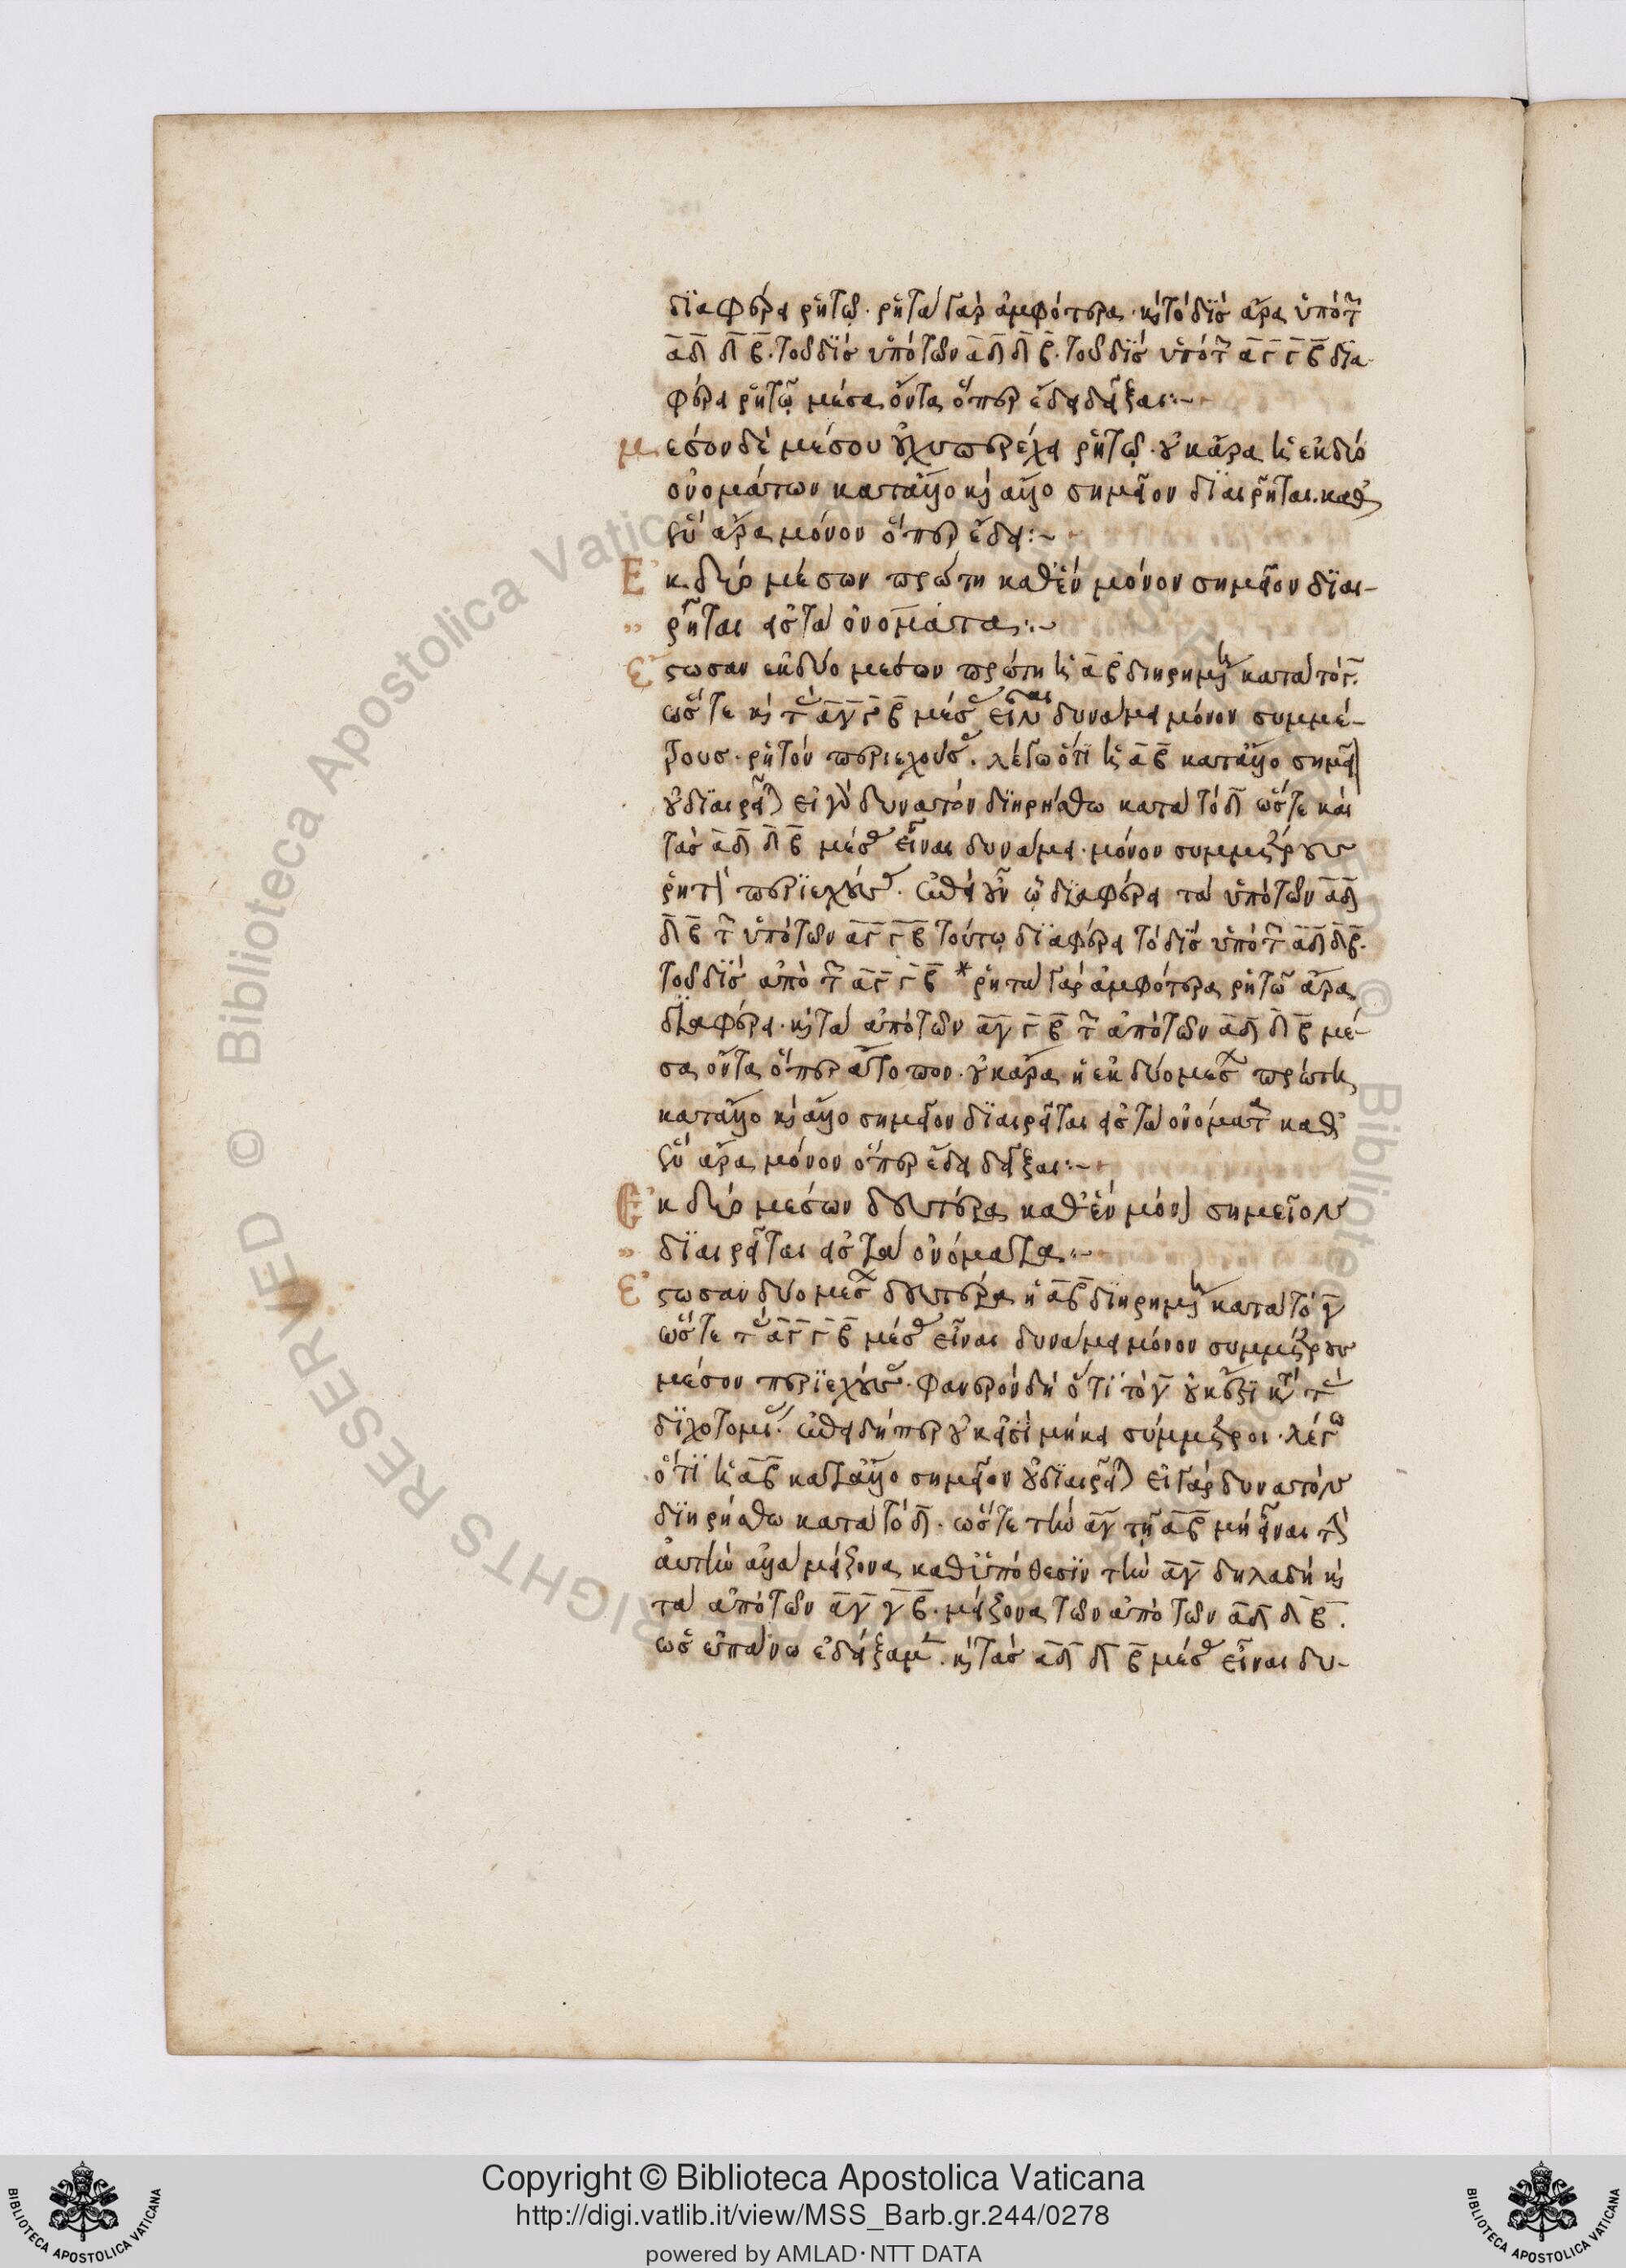 διαφέρει ρητῷ· ρητὰ γὰρ ἀμφότερα· καὶ τὸ δὶς ἄρα ὑπὸ τῶν
ᾱδ̄ δ̄β̄· τοῦ δὶς ὑπὸ τῶν ᾱδ̄ δ̄β̄· τοῦ δὶς ὑπὸ τῶν ᾱγ̄ γ̄β̄ δια-
φέρει ρητῷ μέσα ὄντα ὅπερ ἔδει δεῖξαι:~
Μέσον δὲ μέσου οὐχ ὑπερέχει ρητῷ· οὐκ ἄρα ἡ ἐκ δύο
ὀνομάτων κατ' ἄλλο καὶ ἄλλο σημεῖον διαιρεῖται· καθ'
ἓν ἄρα μόνον ὅπερ ἔδει:~
Ἐκ δύο μέσων πρώτη καθ' ἓν μόνον σημεῖον διαι-
ρεῖται εἰς τὰ ὀνόματα:~
Ἔστωσαν ἐκ δύο μέσων πρώτη ἡ ᾱβ̄ διῃρημένη κατὰ τὸ γ̄.
ὥστε καὶ τὰς ᾱγ̄ γ̄β̄ μέσας εἶναι δυνάμει μόνον συμμέ-
τρους· ρητὸν περιεχούσας. λέγω ὅτι ἡ ᾱβ̄ κατ' ἄλλο σημεῖον
οὐ διαιρεῖται εἰ γὰρ δυνατὸν διῃρήσθω κατὰ τὸ δ̄ ὥστε καὶ
τὰς ᾱδ̄ δ̄β̄ μέσας εἶναι δυνάμει· μόνον συμμέτρους
ρητὸν περιεχούσας. ἐπεὶ οὖν ᾧ διαφέρει τὰ ὑπὸ τῶν ᾱδ̄
δ̄β̄ τῶν ὑπὸ τῶν ᾱγ̄ γ̄β̄ τούτῳ διαφέρει τὸ δὶς ὑπὸ τῶν ᾱδ̄ δ̄β̄.
τοῦ δὶς ἀπὸ τῶν ᾱγ̄ γ̄β̄ * ρητὰ γὰρ ἀμφότερα ρητῷ ἄρα
διαφέρει· καὶ τὰ ἀπὸ τῶν ᾱγ̄ γ̄β̄ τῶν ἀπὸ τῶν ᾱδ̄ δ̄β̄ μέ-
σα ὄντα ὅπερ ἄτοπον· οὐκ ἄρα ἡ ἐκ δύο μέσων πρώτη
κατ' ἄλλο καὶ ἄλλο σημεῖον διαιρεῖται εἰς τὰ ὀνόματα καθ'
ἓν ἄρα μόνον ὅπερ ἔδει δεῖξαι:~
Ἐκ δύο μέσων δευτέρα καθ' ἓν μόνον σημεῖον
διαιρεῖται εἰς τὰ ὀνόματα:~
Ἔστωσαν δύο μέσων δευτέρα ἡ ᾱβ̄ διῃρημένη κατὰ τὸ γ̄
ὥστε τὰς ᾱγ̄ γ̄β̄ μέσας εἶναι δυνάμει μόνον συμμέτρους
μέσον περιεχούσας· φανερὸν δὴ ὅτι τὸ γ̄ οὐκ ἔστι κατὰ τὰς
διχοτομίας. ἐπειδήπερ οὐκ εἰσὶ μήκει σύμμετροι· λέγω
ὅτι ἡ ᾱβ̄ κατ' ἄλλο σημεῖον οὐ διαιρεῖται εἰ γὰρ δυνατὸν
διῃρήσθω κατὰ τὸ δ̄. ὥστε τὴν ᾱγ̄ τῇ ᾱβ̄ μὴ εἶναι τὴν
αὐτὴν ἀλλὰ μείζονα καθ' ὑπόθεσιν τὴν ᾱγ̄ δηλαδὴ καὶ
τὰ ἀπὸ τῶν ᾱγ̄ γ̄β̄· μείζονα τῶν ἀπὸ τῶν ᾱδ̄ δ̄β̄.
ὡς ἐπάνω ἐδείξαμεν. καὶ τὰς ᾱδ̄ δ̄β̄ μέσας εἶναι δυ-
Copyright © Biblioteca Apostolica Vaticana
http://digi.vatlib.it/view/MSS_Barb.gr.244/0278
powered by AMLAD·NTT DATA